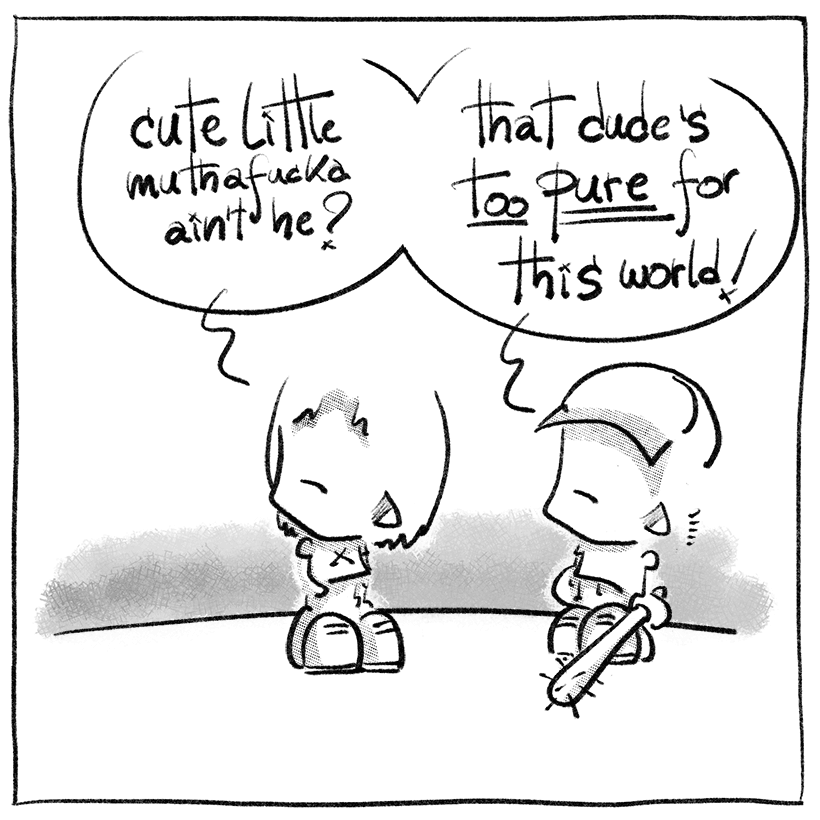 cute little
muthafucka
ain't he?
that dude's
too pure for
this world!